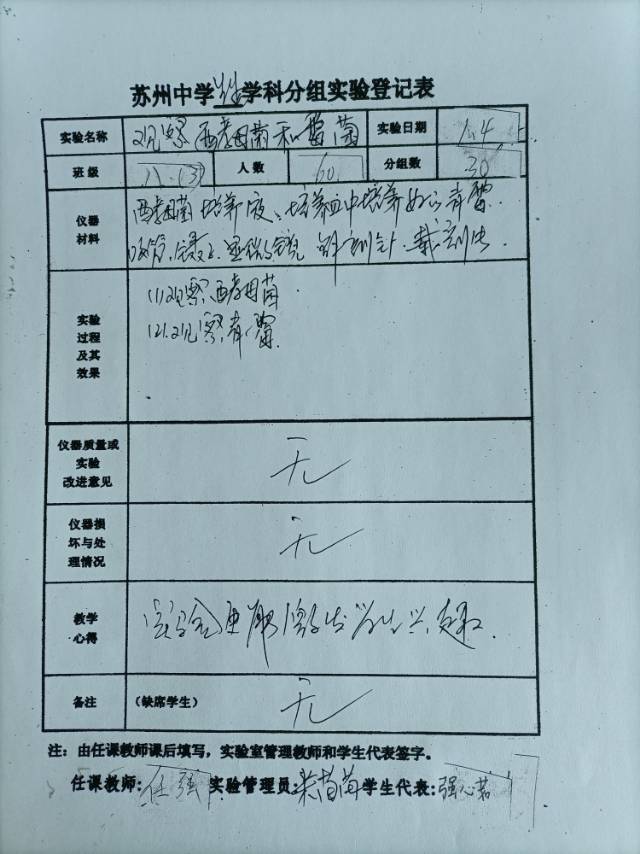 苏州中学生物学科分组实验登记表
实验名称 观察酵母菌和霉菌 实验日期 1.4
班级 八.(3) 人数 60 分组数 30
仪器材料 酵母菌培养液、培养皿中培养好的青霉.
吸管.镊子.显微镜 解剖针.载玻片.
实验过程及其效果
(1)观察酵母菌
(2).观察青霉.
仪器质量或实验改进意见 无
仪器损坏与处理情况 无
教学心得 实验更能激发学生兴趣.
备注 (缺席学生) 无
注：由任课教师课后填写，实验室管理教师和学生代表签字。
任课教师:任强 实验管理员: 学生代表:强心茗